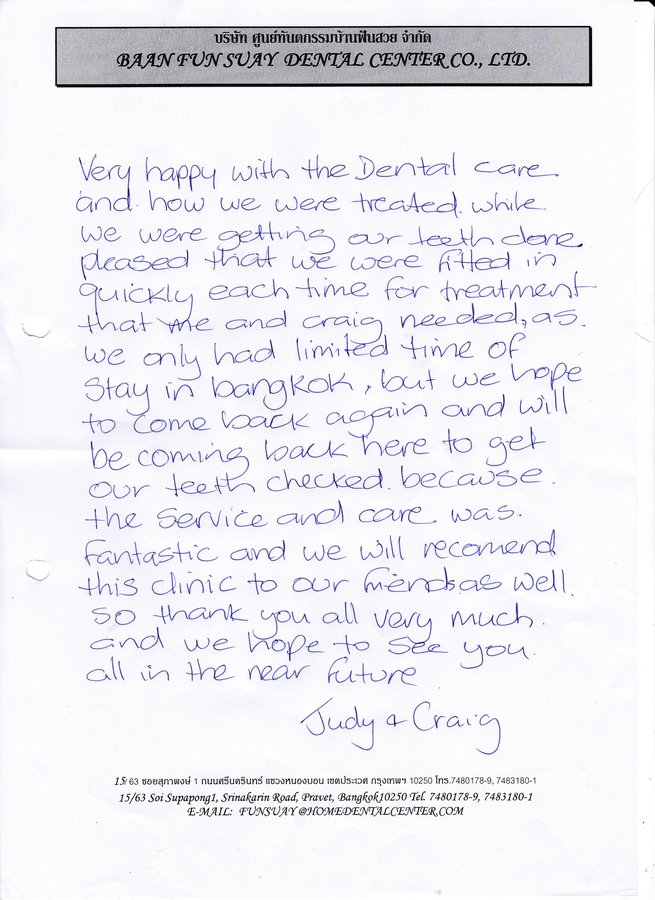 บริษัท ศูนย์ทันตกรรมบ้านฟันสวย จำกัด
BAAN FUN SUAY DENTAL CENTER CO., LTD.
Very happy with the Dental care.
and how we were treated. while
we were getting our teeth done
pleased that we were fitted in
quickly each time for treatment
that me and craig needed, as.
we only had limited time of
stay in bangkok, but we hope
to come back again and will
be coming back here to get
our teeth checked. because.
the service and care was.
fantastic and we will recomend
this clinic to our friends as well.
so thank you all very much.
and we hope to see you.
all in the near future
Judy & Craig
15/ 63 ซอยสุภาพงษ์ 1 ถนนศรีนครินทร์ แขวงหนองบอน เขตประเวศ กรุงเทพฯ 10250 โทร.7480178-9, 7483180-1
15/63 Soi Supapong1, Srinakarin Road, Pravet, Bangkok10250 Tel. 7480178-9, 7483180-1
E-MAIL: FUNSUAY@HOMEDENTALCENTER.COM